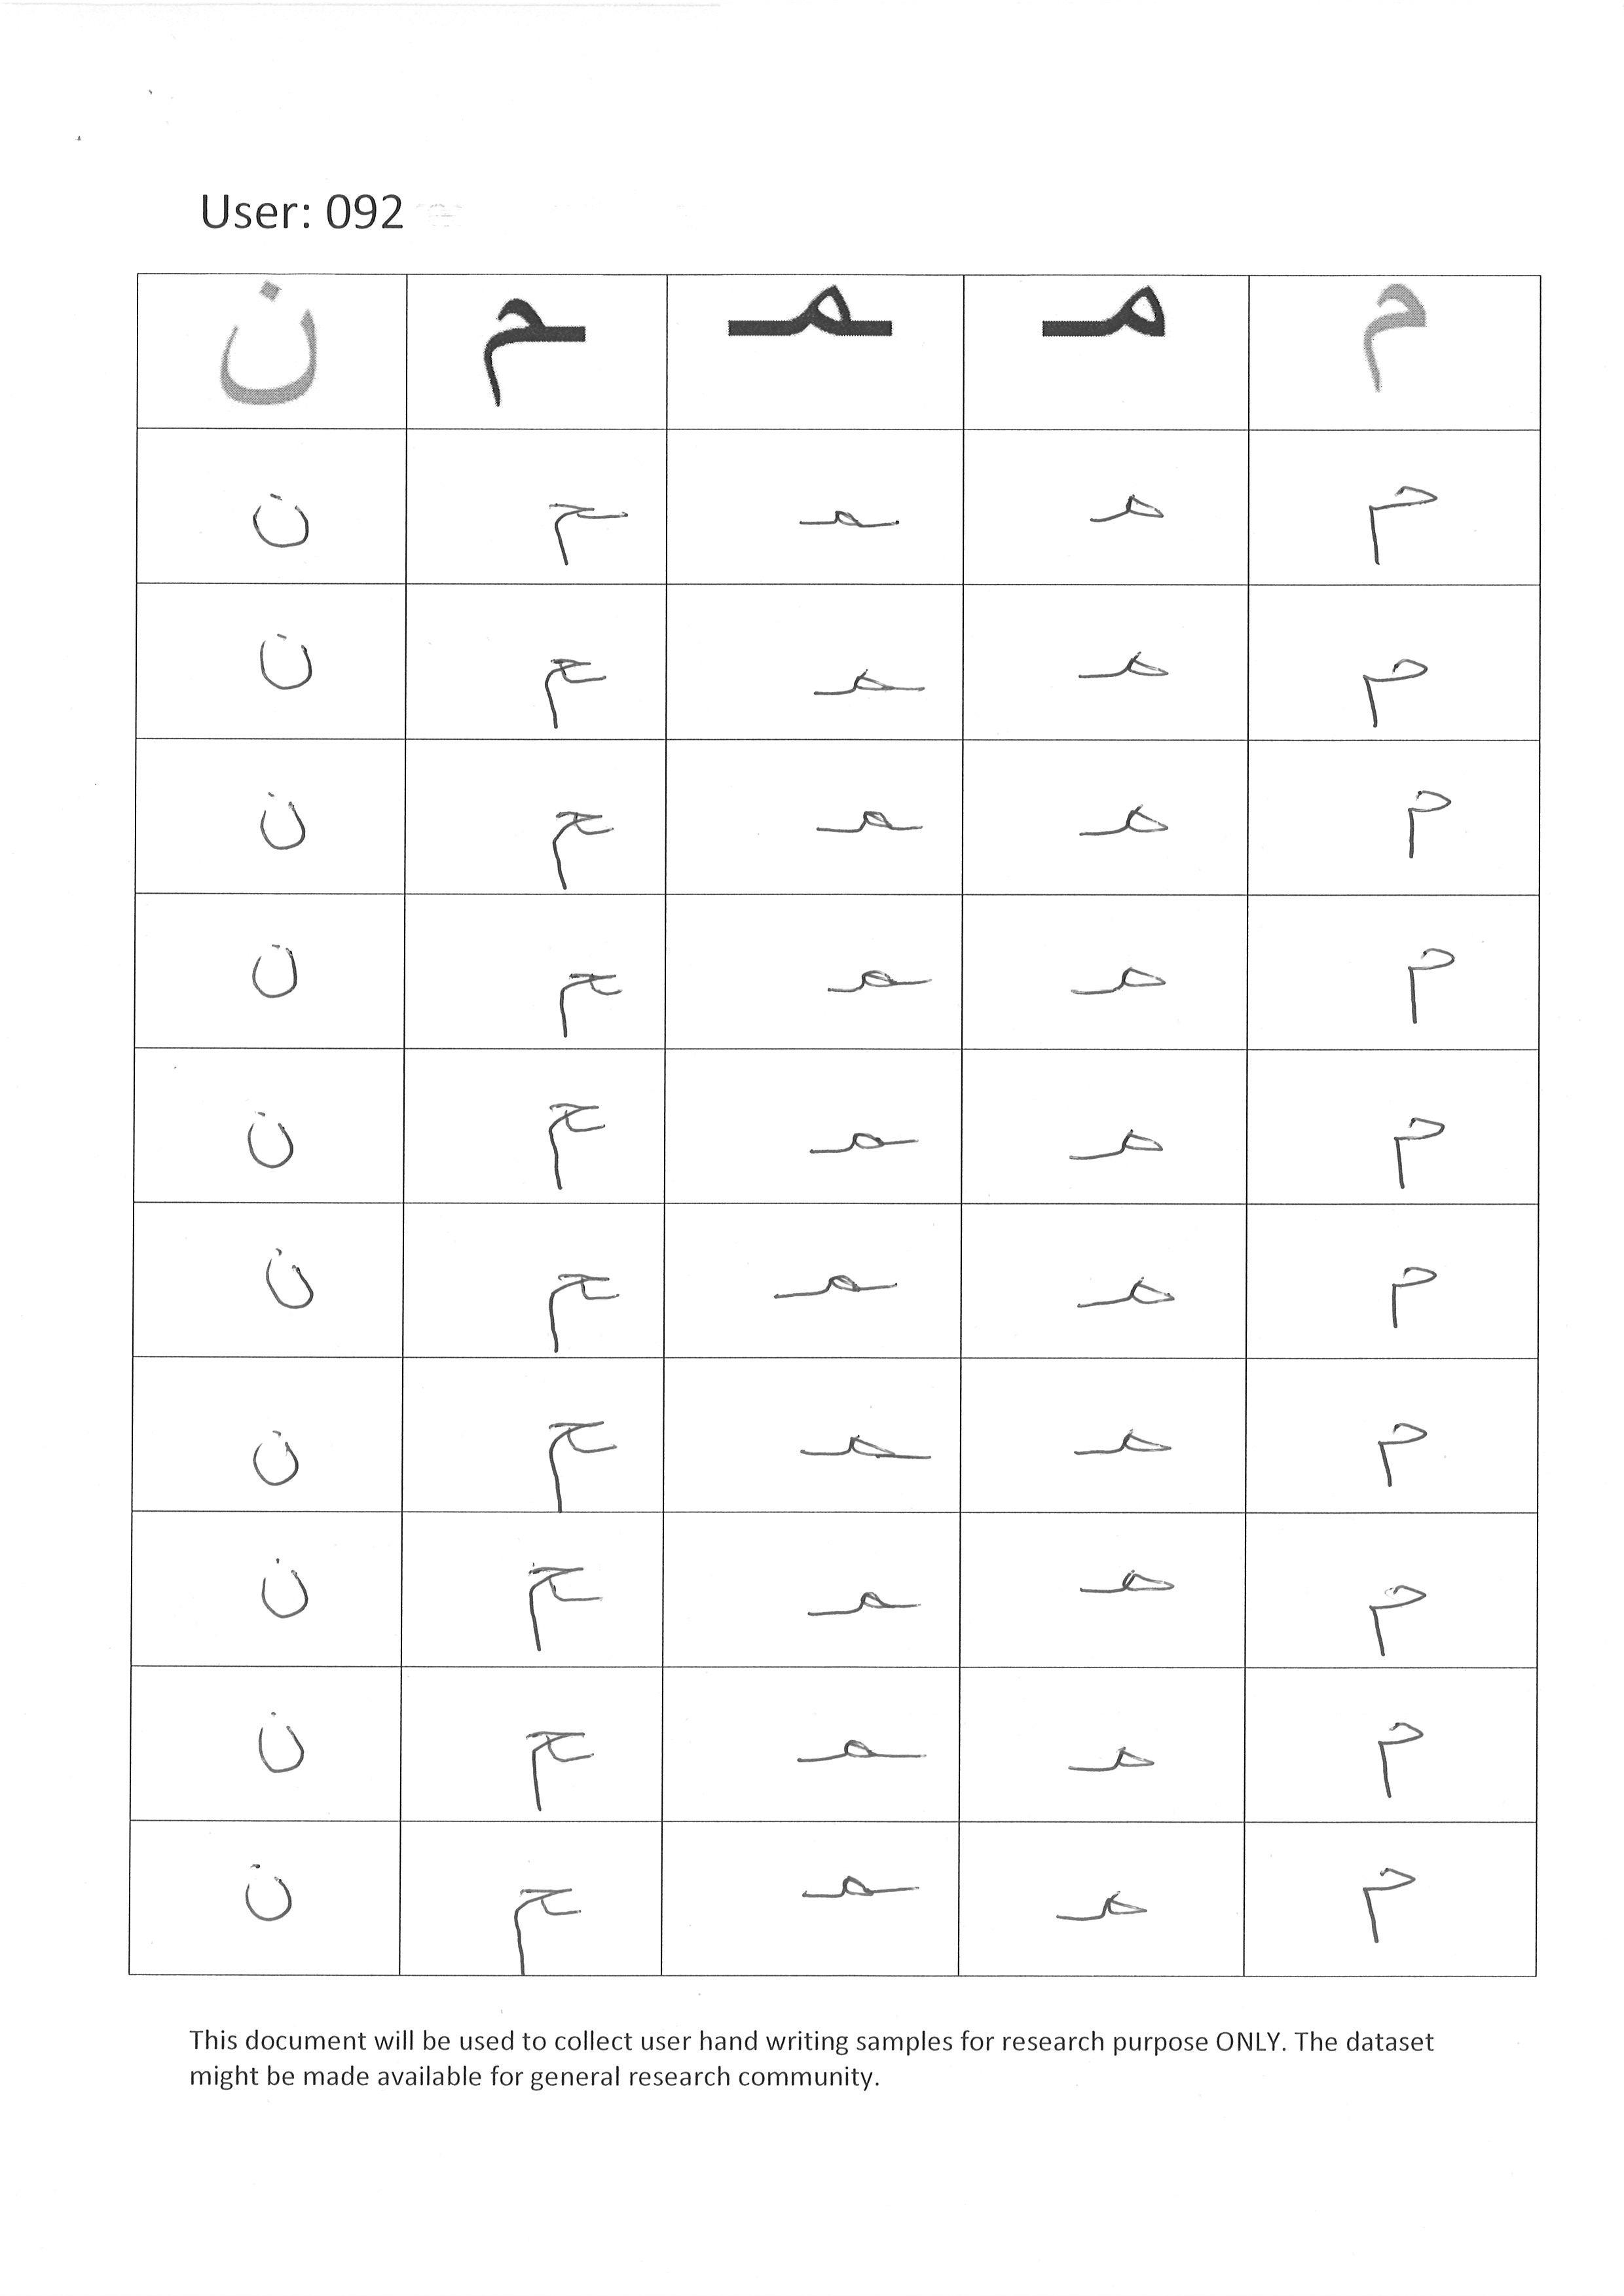 User: 092
م مـ ـمـ ـم ن
م مـ ـمـ ـم ن
م مـ ـمـ ـم ن
م مـ ـمـ ـم ن
م مـ ـمـ ـم ن
م مـ ـمـ ـم ن
م مـ ـمـ ـم ن
م مـ ـمـ ـم ن
م مـ ـمـ ـم ن
م مـ ـمـ ـم ن
م مـ ـمـ ـم ن
This document will be used to collect user hand writing samples for research purpose ONLY. The dataset
might be made available for general research community.